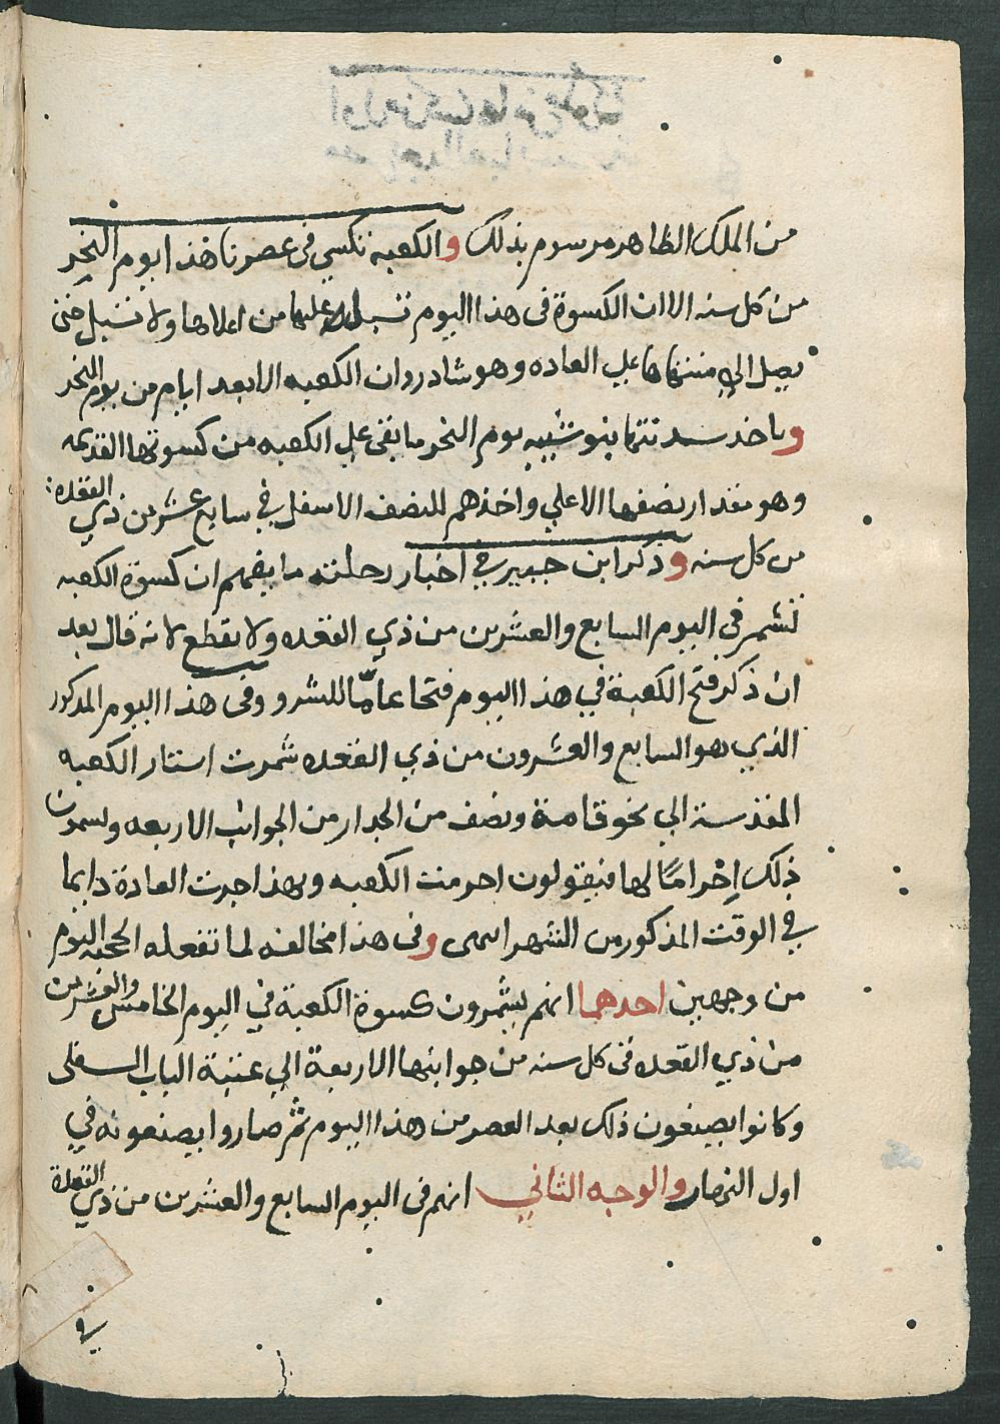 من الملك الظاهر مرسوم بذلك والكعبة تكسي في عصرنا هذا يوم النحر
من كل سنه الا ان الكسوة في هذا اليوم تسبل عليها من اعلاها ولا تسبل حتى
يصل الي منتهاها علي العاده وهو شادروان الكعبه الا بعد ايام من يوم النحر
وياخذ سدنتها بنو شيبه يوم النحر ما بقي علي الكعبه من كسوتها القديمه
وهو مقدار نصفها الاعلي واخذهم للنصف الاسفل في سابع عشرين ذي القعده
من كل سنه وذكر ابن جبير في اخبار رحلته ما يفهم ان كسوة الكعبه
تشمر في اليوم السابع والعشرين من ذي القعده ولا يقطع لانه قال بعد
ان ذكر فتح الكعبة في هذا اليوم فتحا عامّا للسرو وفي هذا اليوم المذكور
الذي هو السابع والعشرون من ذي القعده شمرت استار الكعبه
المقدسة الي نحو قامة ونصف من الجدار من الجوانب الاربعه ويسمون
ذلك اِحْرامًا لها فيقولون احرمت الكعبه وبهذا جرت العادة دايما
في الوقت المذكور من الشهر انتهى وفي هذا مخالفه لما تفعله الحجبه اليوم
من وجهين احدهما انهم يشمرون كسوة الكعبة في اليوم الخامس والعشرين
من ذي القعده في كل سنه من جوانبها الاربعة الي عتبة الباب السفلى
وكانوا يصنعون ذلك بعد العصر من هذا اليوم ثم صاروا يصنعونه في
اول النهار والوجه الثاني انهم في اليوم السابع والعشرين من ذي القعدة
في